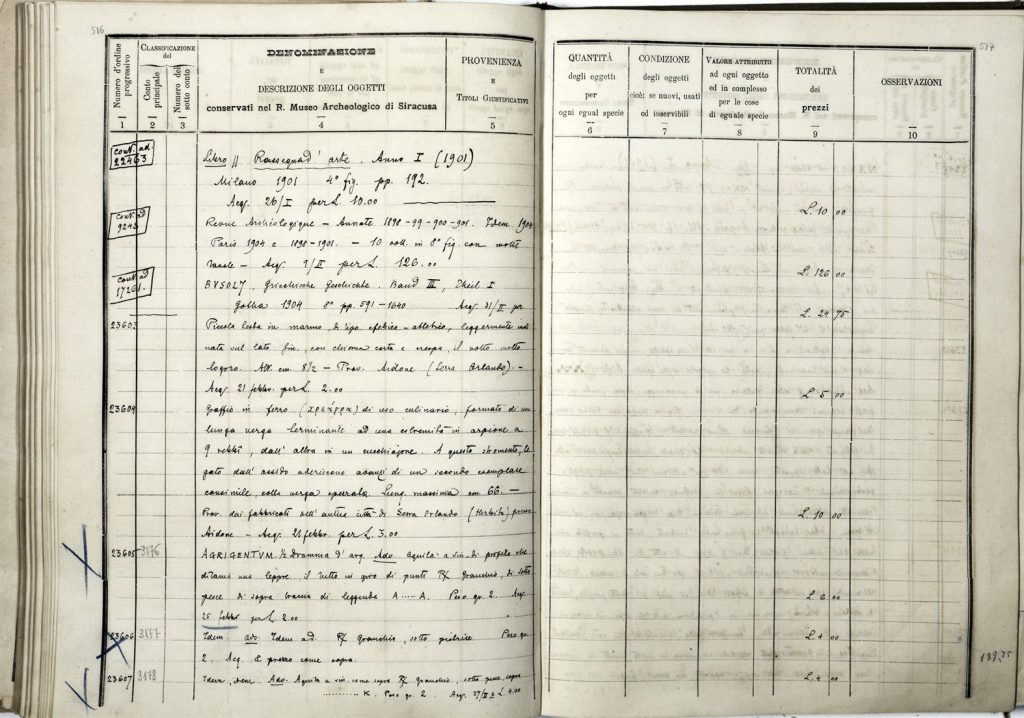 516
Numero d'ordine progressivo
CLASSIFICAZIONE del
Conto principale
Numero del sotto conto
DENOMINAZIONE
E
DESCRIZIONE DEGLI OGGETTI
conservati nel R. Museo Archeologico di Siracusa
PROVENIENZA
E
TITOLI GIUSTIFICATIVI
1 2 3 4 5
Cont. ad. 22463
Libro // Rassegna d'arte. Anno I (1901)
Milano 1901 4° fig. pp. 192.
Acq. 26/I per L. 10.00
Cont. ad 9243
Revue Archéologique – Annate 1898-99-900-901. Idem 1904
Paris 1904 e 1898-1901. – 10 voll. in 8° fig. con molte
– Acq. 9/II per L. 126.00
Cont. ad 17261.
BVSOLT, Griechische Geschichte. Band III, Theil I
Gotha 1904 8° pp. 591-1640 Acq. 21/II per
23603
Piccola testa in marmo, di tipo efebico-atletico, leggermente incli
nata sul lato sin., con chioma corta e crespa, il volto molto
logoro. Alt. cm. 8½ – Prov. Aidone (Serra Orlando). –
Acq. 21 febbr. per L. 2.00
23604
Graffio in ferro (κρεάγρα) di uso culinario, formato di una
lunga verga terminante ad una estremità in arpione a
9 rebbî, dall'altra in un cucchiaione. A questo strumento, le
gato dall'ossido aderiscono avanzi di un secondo esemplare
consimile colla verga spezzata. Lung. massima cm 66. –
Prov. dai fabbricati dell'antica città di Serra Orlando (Herbita) presso
Aidone – Acq. 21 febbr. per L. 3.00
23605 3176
AGRIGENTVM. ½ Dramma d'arg. Adv. aquila a sin. di profilo che
dilania una lepre, il tutto in giro di punti R/ Granchio, di sotto
pesce di sopra traccia di leggenda A.....A. Peso gr. 2. Acq.
25 febbr per L. 2.00
23606 3177
Idem. adv. Idem ad. R/ Granchio, sotto Peso gr.
2. Acq. e prezzo come sopra.
23607 3178
Idem, Adv. Aquila a sin. come sopra R/ Granchio, sotto pesce, sopra
K. Peso gr. 2. Acq. 27/II L. 4.00
517
QUANTITÀ
degli oggetti
per
ogni egual specie
CONDIZIONE
degli oggetti
cioè: se nuovi, usati
od inservibili
VALORE ATTRIBUITO
ad ogni oggetto
ed in complesso
per le cose
di eguale specie
TOTALITÀ
dei
prezzi
OSSERVAZIONI
6 7 8 9 10
L. 10 00
L. 126 00
L. 24 75
L. 5 00
L. 10 00
L. 6 00
L. 4 00
189,75
L. 4 00